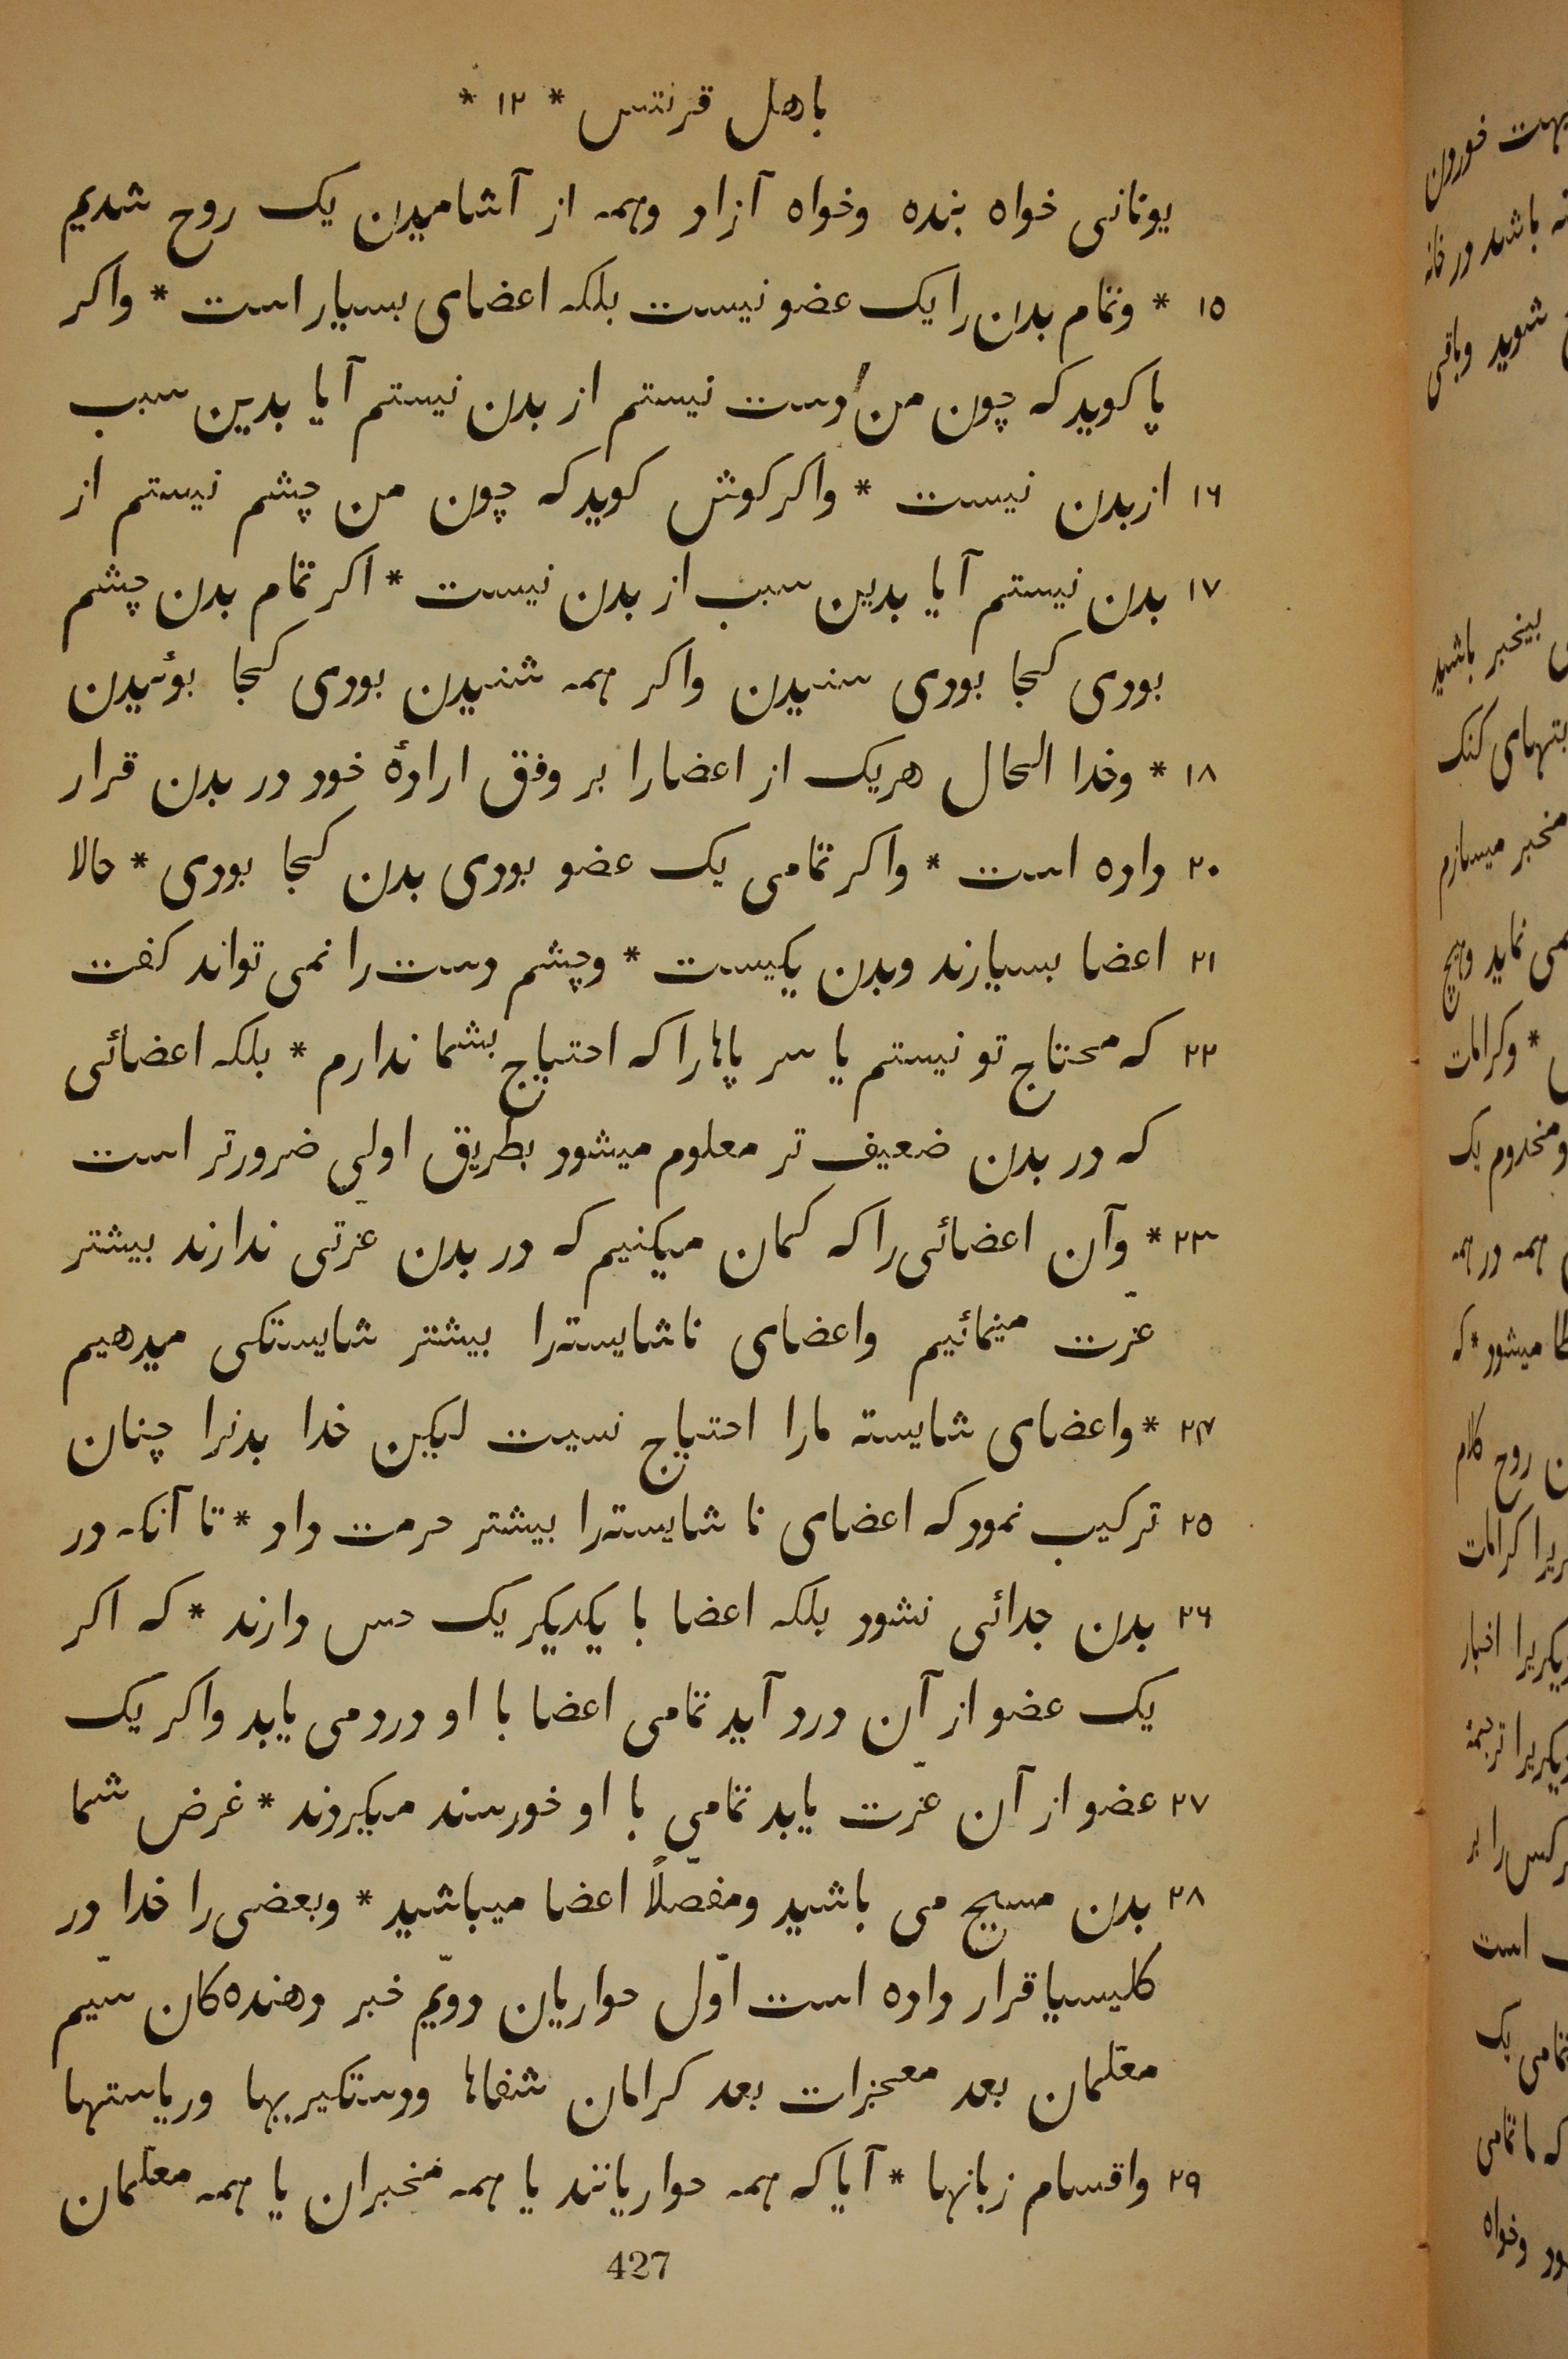 باهل قرنتس * ۱۲ *
یونانی خواه بنده وخواه آزاد وهمه از آشامیدن یک روح شدیم
۱۵ * وتمام بدن را یک عضو نیست بلکه اعضای بسیار است * واکر
پا کوید که چون من دست نیستم از بدن نیستم آیا بدین سبب
۱۶ از بدن نیست * واکر کوش کوید که چون من چشم نیستم از
۱۷ بدن نیستم آیا بدین سبب از بدن نیست * اکر تمام بدن چشم
بودی کجا بودی سنیدن واکر همه شنیدن بودی کجا بوئیدن
۱۸ * وخدا الحال هریک از اعضارا بر وفق ارادهٔ خود در بدن قرار
۲۰ داده است * واکر تمامی یک عضو بودی بدن کجا بودی * حالا
۲۱ اعضا بسیارند وبدن یکیست * وچشم دست را نمی تواند کفت
۲۲ که محتاج تو نیستم یا سر پاهارا که احتیاج بشما ندارم * بلکه اعضائی
که در بدن ضعیف تر معلوم میشود بطریق اولی ضرورتر است
۲۳ * وآن اعضائی را که کمان میکنیم که در بدن عزّتی ندارند بیشتر
عزّت مینمائیم واعضای ناشایسته‌را بیشتر شایستکی میدهیم
۲۴ * واعضای شایسته مارا احتیاج نسیت لیکن خدا بدنرا چنان
۲۵ ترکیب نمود که اعضای نا شایسته‌را بیشتر حرمت داد * تا آنکه در
۲۶ بدن جدائی نشود بلکه اعضا با یکدیکر یک حس دارند * که اکر
یک عضو از آن درد آید تمامی اعضا با او درد می یابد واکر یک
۲۷ عضو از آن عزّت یابد تمامی با او خورسند میکیروند * غرض شما
۲۸ بدن مسیح می باشید ومفصّلاً اعضا میباشید * وبعضی را خدا در
کلیسیا قرار داده است اوّل حواریان دویّم خبر دهنده‌کان سیّم
معلّمان بعد معجزات بعد کرامان شفاها ودستکیریها وریاستها
۲۹ واقسام زبانها * آیا که همه حواریانند یا همه مخبران یا همه معلّمان
427